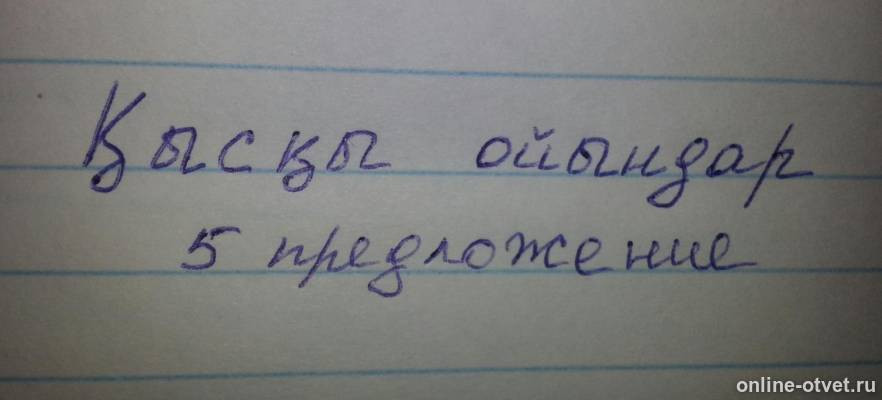 Қысқы ойындар
5 предложение
online-otvet.ru